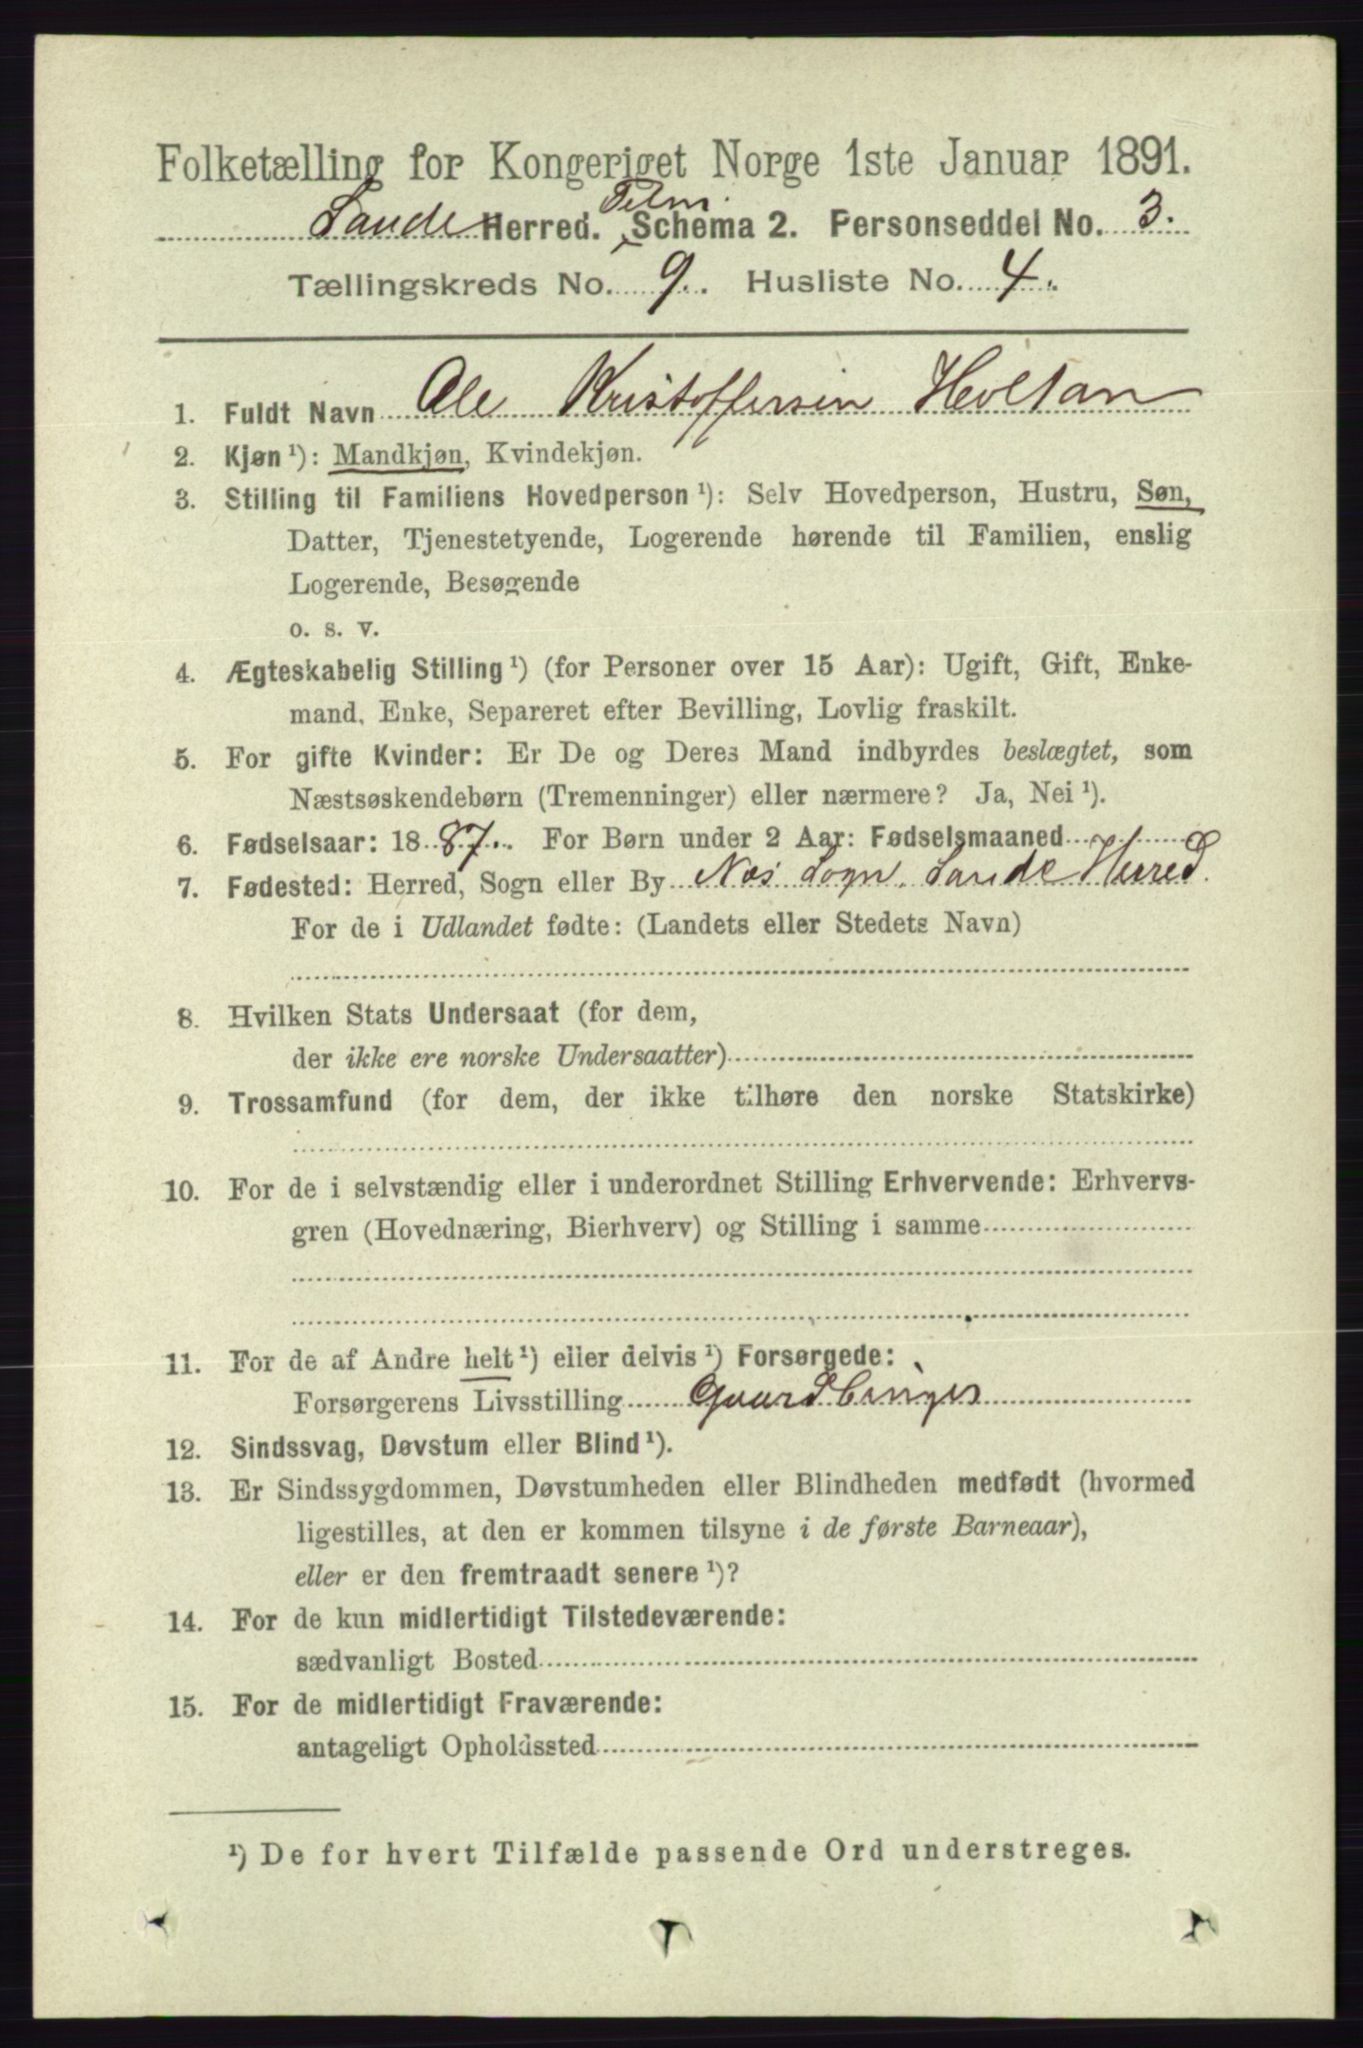 Folketælling for Kongeriget Norge 1ste Januar 1891.
Telm.
Saude Herred. Schema 2. Personseddel No. 3.
Tællingskreds No. 9. Husliste No. 4.
1. Fuldt Navn Ole Kristoffersen Holtan
2. Kjøn ¹): Mandkjøn, Kvindekjøn.
3. Stilling til Familiens Hovedperson ¹): Selv Hovedperson, Hustru, Søn,
Datter, Tjenestetyende, Logerende hørende til Familien, enslig
Logerende, Besøgende
o. s. v.
4. Ægteskabelig Stilling ¹) (for Personer over 15 Aar): Ugift, Gift, Enke-
mand, Enke, Separeret efter Bevilling, Lovlig fraskilt.
5. For gifte Kvinder: Er De og Deres Mand indbyrdes beslægtet, som
Næstsøskendebørn (Tremenninger) eller nærmere? Ja, Nei ¹).
6. Fødselsaar: 1887. For Børn under 2 Aar: Fødselsmaaned
7. Fødested: Herred, Sogn eller By Nes Sogn. Saude Herred.
For de i Udlandet fødte: (Landets eller Stedets Navn)
8. Hvilken Stats Undersaat (for dem,
der ikke ere norske Undersaatter)
9. Trossamfund (for dem, der ikke tilhøre den norske Statskirke)
10. For de i selvstændig eller i underordnet Stilling Erhvervende: Erhvervs-
gren (Hovednæring, Bierhverv) og Stilling i samme
11. For de af Andre helt ¹) eller delvis ¹) Forsørgede:
Forsørgerens Livsstilling Gaardbruger
12. Sindssvag, Døvstum eller Blind ¹).
13. Er Sindssygdommen, Døvstumheden eller Blindheden medfødt (hvormed
ligestilles, at den er kommen tilsyne i de første Barneaar),
eller er den fremtraadt senere ¹)?
14. For de kun midlertidigt Tilstedeværende:
sædvanligt Bosted
15. For de midlertidigt Fraværende:
antageligt Opholdssted
¹) De for hvert Tilfælde passende Ord understreges.